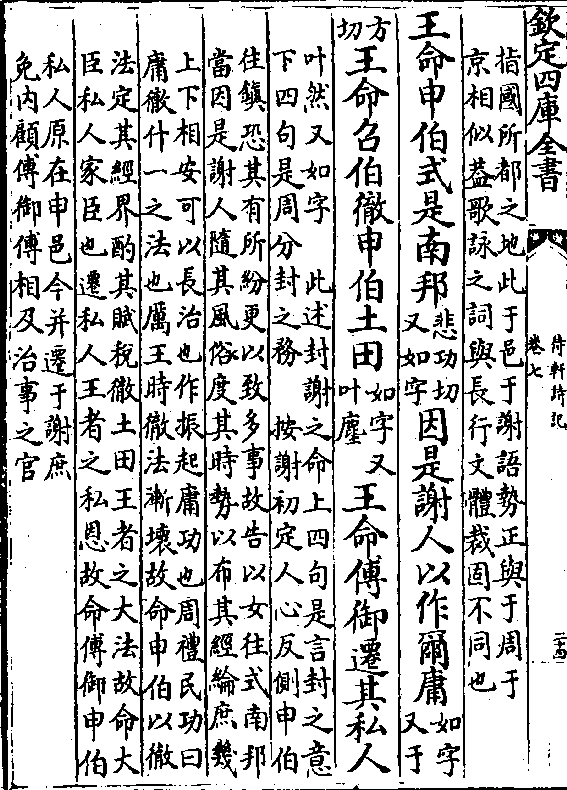 欽定四庫全書
待軒詩記
卷七
二十四
指國所都之地此于邑于謝語勢正與于周于
京相似葢歌詠之詞與長行文體裁固不同也
王命申伯式是南邦悲功切又如字因是謝人以作爾庸如字又于
方切王命召伯徹申伯土田如字又叶塵王命傅御遷其私人
叶然又如字　此述封謝之命上四句是言封之意
下四句是周分封之務　按謝初定人心反側申伯
往鎮恐其有所紛更以致多事故告以女往式南邦
當因是謝人隨其風俗度其時勢以布其經綸庶幾
上下相安可以長治也作振起庸功也周禮民功曰
庸徹什一之法也厲王時徹法漸壞故命申伯以徹
法定其經界酌其賦稅徹土田王者之大法故命大
臣私人家臣也遷私人王者之私恩故命傅御申伯
私人原在申邑今并遷于謝庶
免内顧傅御傅相及治事之官